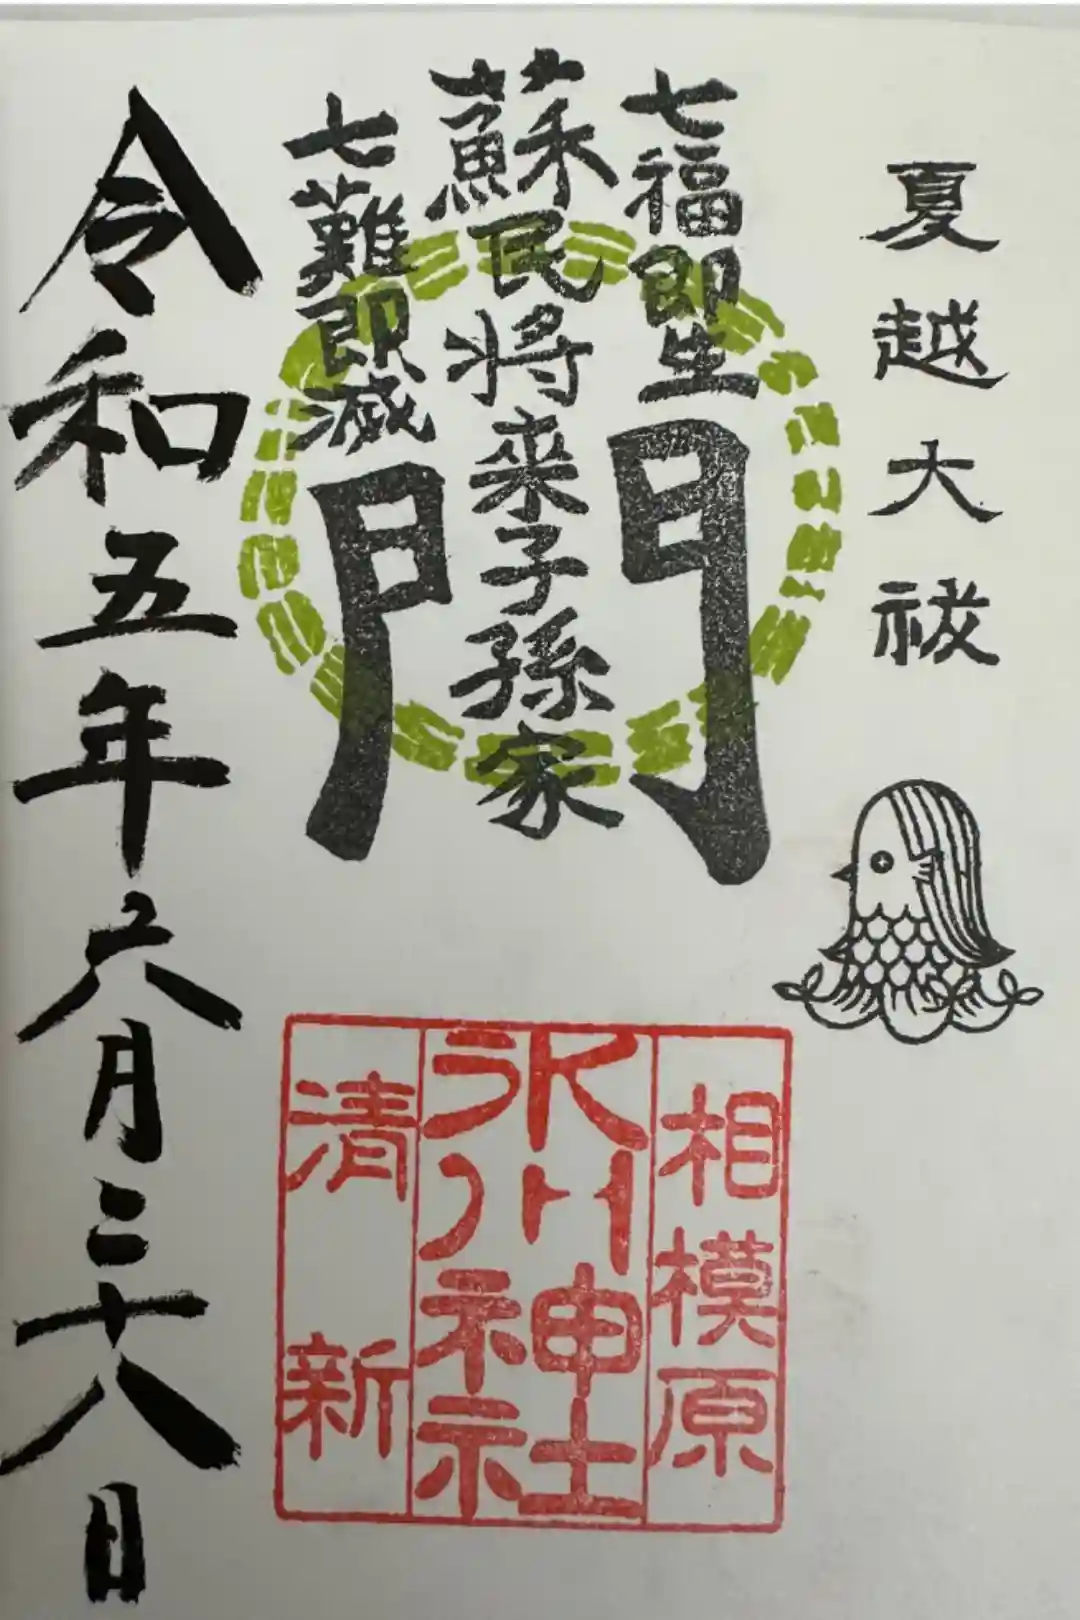 夏越大祓
七福即生
蘇民将来子孫家
門
七難即滅
相模原
氷川神社
清新
令和五年六月二十八日